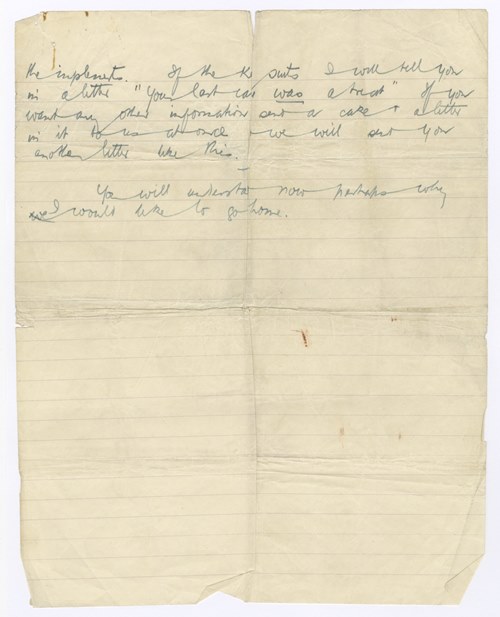 the implements. If the K suits I will tell you
in a letter "Your last cake was a treat" If you
want any other information send a cake & a letter
in it to us at once & we will send you
another letter like this.
You will understand now perhaps why
I would like to go home.